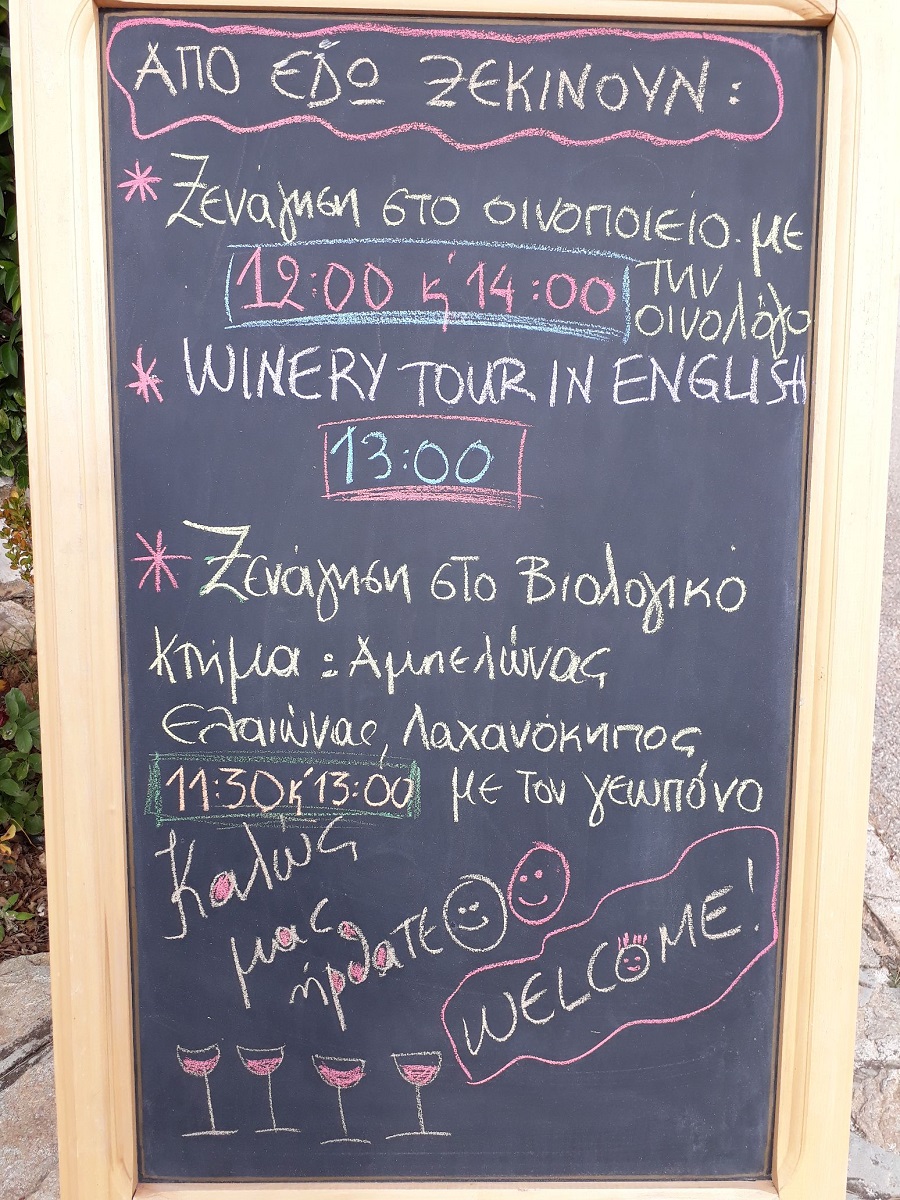 ΑΠΟ ΕΔΩ ΞΕΚΙΝΟΥΝ:
* Ξενάγηση στο οινοποιείο με
12:00 ή 14:00 την
οινολόγο
* WINERY TOUR IN ENGLISH
13:00
* Ξενάγηση στο Βιολογικό
Κτήμα : Αμπελώνας
Ελαιώνας, Λαχανόκηπος
11:30 ή 13:00 με τον γεωπόνο
Καλώς
μας
ήρθατε
WELCOME!